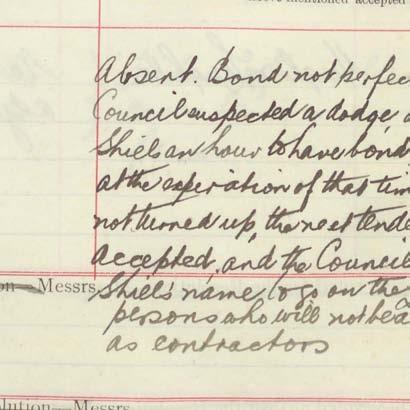 above mentioned accepted
Absent. Bond not perfec
Council suspected a dodge
Shiels an hour to have bond
at the experiation of that tim
not turned up, the next tende
accepted, and the Council
on — Messrs. Shiel's name to go on the
persons who will not be a
as contractors
lution — Messrs.